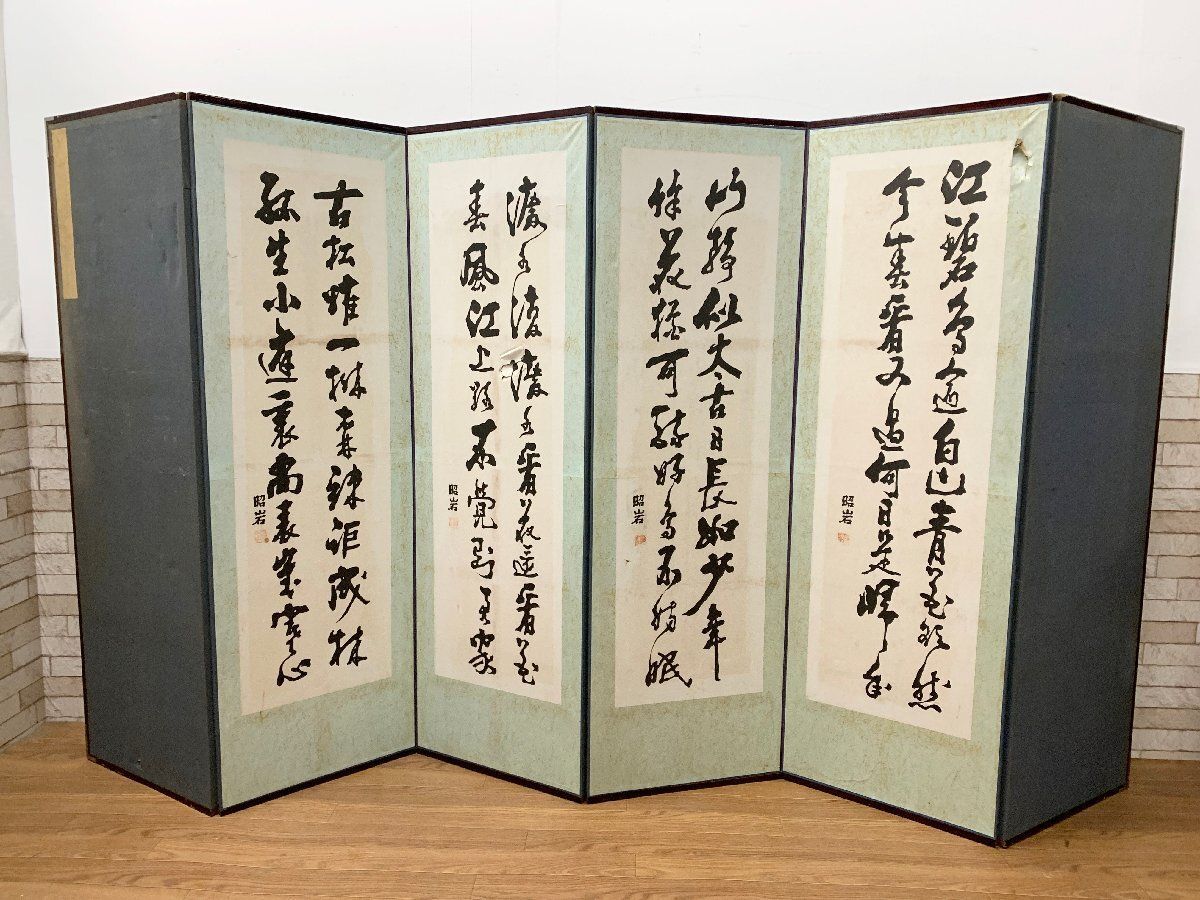 江碧鳥逾白山青花欲然
今春看又過何日是歸年
昭岩
山静似太古日長如少年
餘花猶可醉好鳥不妨眠
昭岩
渡水復渡水看花還看花
春風江上路不覺到君家
昭岩
古松唯一樹森竦詎成林
孤生小庭裏尚表歳寒心
昭岩